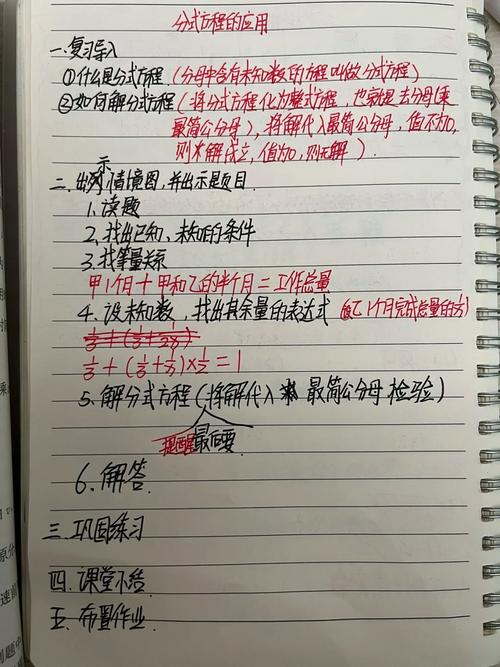 分式方程的应用
一.复习导入
①什么是分式方程(分母中含有未知数的方程叫做分式方程)
②如何解分式方程(将分式方程化为整式方程,也就是去分母(乘
最简公分母),将解代入最简公分母,值不为0,
则解成立,值为0,则无解).
示
二.出情境图,并出示题目.
1.读题
2.找出已知、未知的条件
3.找等量关系
甲1个月+甲和乙的半个月=工作总量
4.设未知数,找出其余量的表达式(设乙1个月完成总量的)
1/3+(1/3+1/x)×1/2=1
5.解分式方程(将解代入最简公分母检验)
提醒最后要
6.解答.
三.巩固练习
四.课堂小结
五.布置作业.